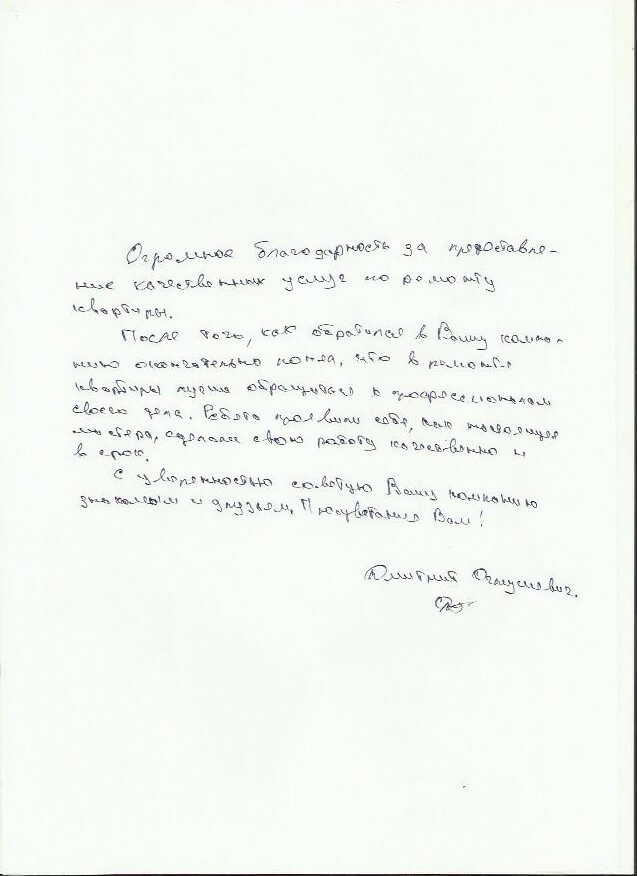 Огромное благодарность за предоставле-
ние качественных услуг по ремонту
квартиры.
После того, как обратился в Вашу компа-
нию окончательно понял, что в ремонте
квартиры лучше обращаться к профессионалам
своего дела. Ребята проявили себя, как настоящие
мастера, сделали свою работу качественно и
в срок.
С уверенностью советую Вашу компанию
знакомым и друзьям. Процветания Вам!
Дмитрий